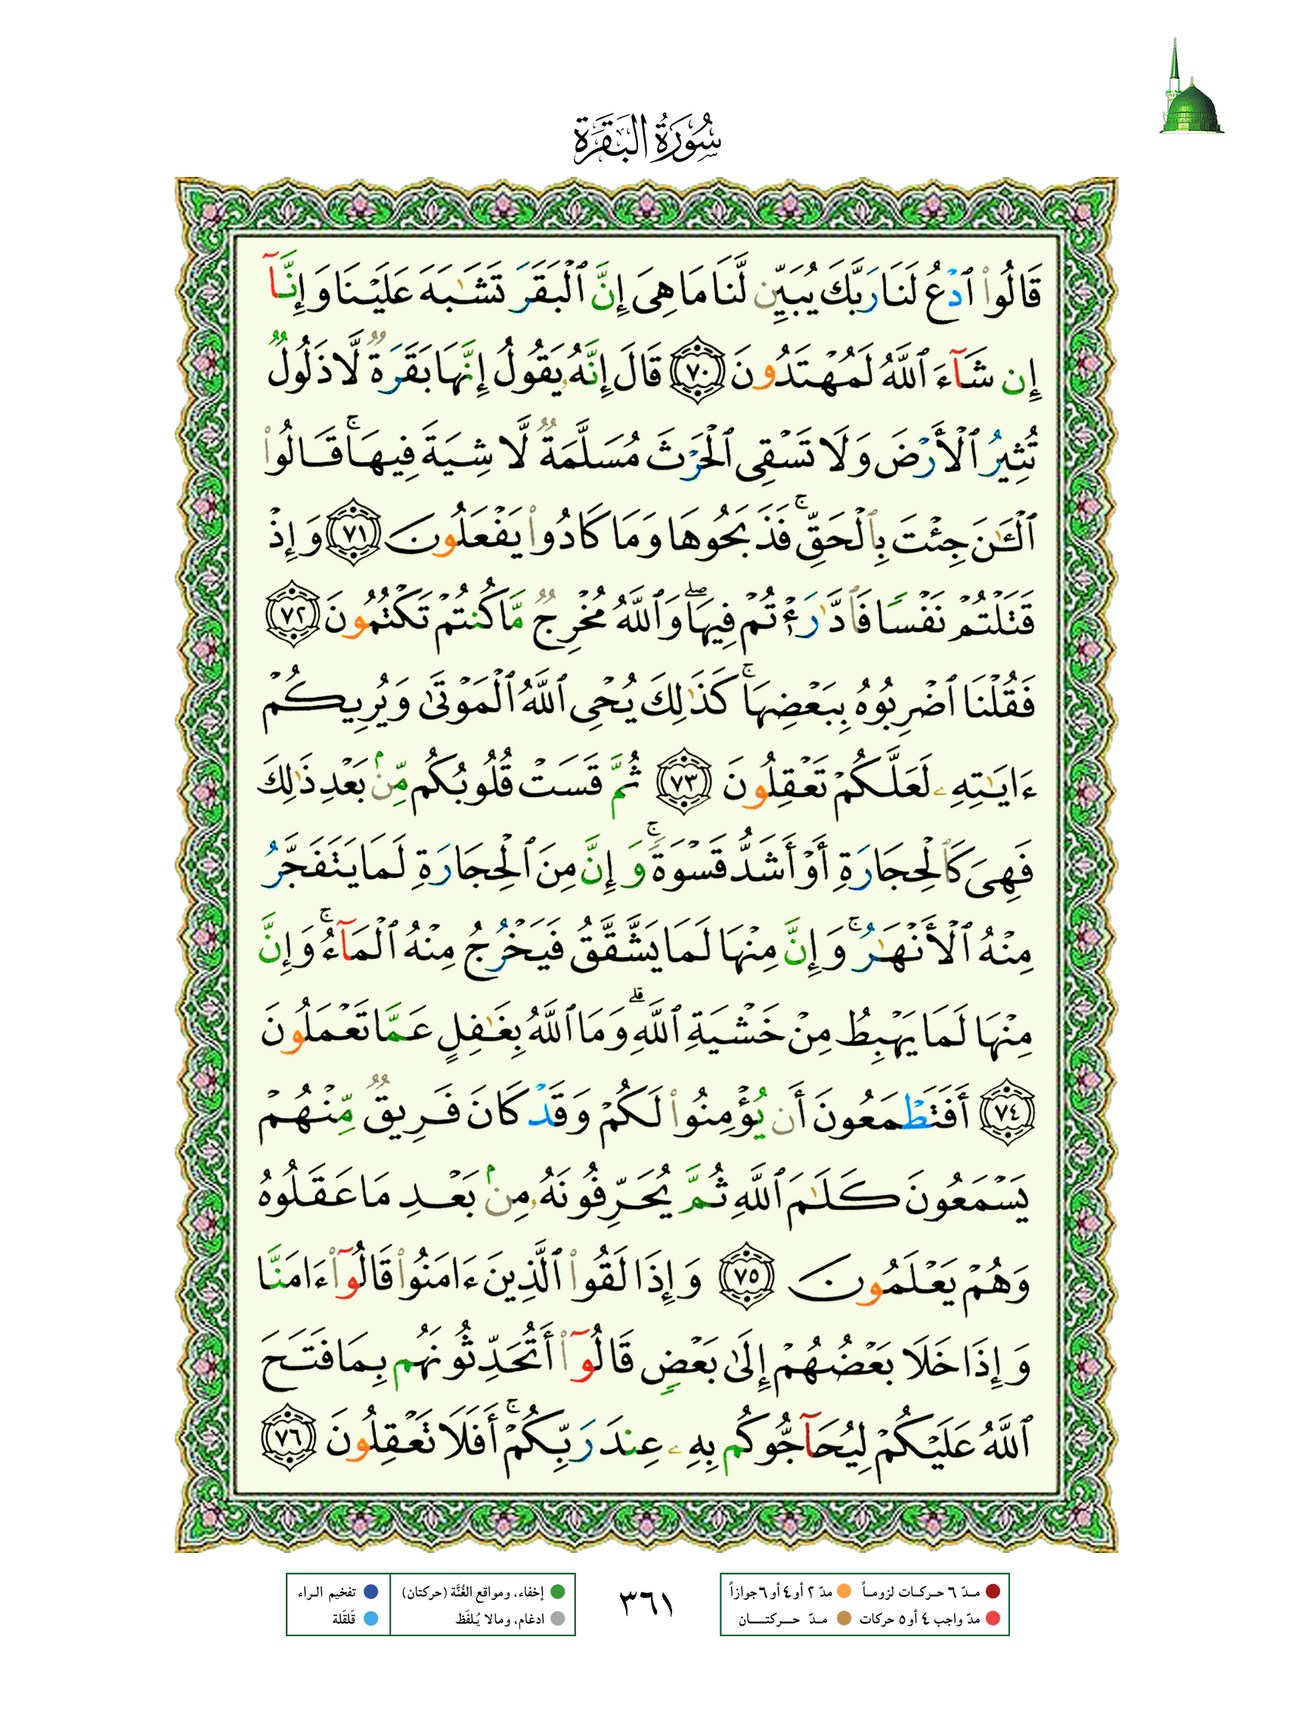 سُورَةُ البَقَرَة
قَالُوا۟ ٱدْعُ لَنَا رَبَّكَ يُبَيِّن لَّنَا مَا هِىَ إِنَّ ٱلْبَقَرَ تَشَـٰبَهَ عَلَيْنَا وَإِنَّآ
إِن شَآءَ ٱللَّهُ لَمُهْتَدُونَ ٧٠ قَالَ إِنَّهُۥ يَقُولُ إِنَّهَا بَقَرَةٌ لَّا ذَلُولٌ
تُثِيرُ ٱلْأَرْضَ وَلَا تَسْقِى ٱلْحَرْثَ مُسَلَّمَةٌ لَّا شِيَةَ فِيهَا ۚ قَالُوا۟
ٱلْـَٔـٰنَ جِئْتَ بِٱلْحَقِّ ۚ فَذَبَحُوهَا وَمَا كَادُوا۟ يَفْعَلُونَ ٧١ وَإِذْ
قَتَلْتُمْ نَفْسًا فَٱدَّٰرَْٰٔتُمْ فِيهَا ۖ وَٱللَّهُ مُخْرِجٌ مَّا كُنتُمْ تَكْتُمُونَ ٧٢
فَقُلْنَا ٱضْرِبُوهُ بِبَعْضِهَا ۚ كَذَٰلِكَ يُحْىِ ٱللَّهُ ٱلْمَوْتَىٰ وَيُرِيكُمْ
ءَايَـٰتِهِۦ لَعَلَّكُمْ تَعْقِلُونَ ٧٣ ثُمَّ قَسَتْ قُلُوبُكُم مِّنۢ بَعْدِ ذَٰلِكَ
فَهِىَ كَٱلْحِجَارَةِ أَوْ أَشَدُّ قَسْوَةً ۚ وَإِنَّ مِنَ ٱلْحِجَارَةِ لَمَا يَتَفَجَّرُ
مِنْهُ ٱلْأَنْهَـٰرُ ۚ وَإِنَّ مِنْهَا لَمَا يَشَّقَّقُ فَيَخْرُجُ مِنْهُ ٱلْمَآءُ ۚ وَإِنَّ
مِنْهَا لَمَا يَهْبِطُ مِنْ خَشْيَةِ ٱللَّهِ ۗ وَمَا ٱللَّهُ بِغَـٰفِلٍ عَمَّا تَعْمَلُونَ
٧٤ أَفَتَطْمَعُونَ أَن يُؤْمِنُوا۟ لَكُمْ وَقَدْ كَانَ فَرِيقٌ مِّنْهُمْ
يَسْمَعُونَ كَلَـٰمَ ٱللَّهِ ثُمَّ يُحَرِّفُونَهُۥ مِنۢ بَعْدِ مَا عَقَلُوهُ
وَهُمْ يَعْلَمُونَ ٧٥ وَإِذَا لَقُوا۟ ٱلَّذِينَ ءَامَنُوا۟ قَالُوٓا۟ ءَامَنَّا
وَإِذَا خَلَا بَعْضُهُمْ إِلَىٰ بَعْضٍ قَالُوٓا۟ أَتُحَدِّثُونَهُم بِمَا فَتَحَ
ٱللَّهُ عَلَيْكُمْ لِيُحَآجُّوكُم بِهِۦ عِندَ رَبِّكُمْ ۚ أَفَلَا تَعْقِلُونَ ٧٦
مـدّ ٦ حـركـات لزومـاً مدّ ٢ أو ٤ أو ٦ جوازاً
مدّ واجب ٤ أو ٥ حركات مـدّ حـــركتـــــان
٣٦١
إخفاء، ومواقع الغُنَّة (حركتان) تفخيم الـراء
ادغام، ومالا يُـلفَظ قَلقَلة